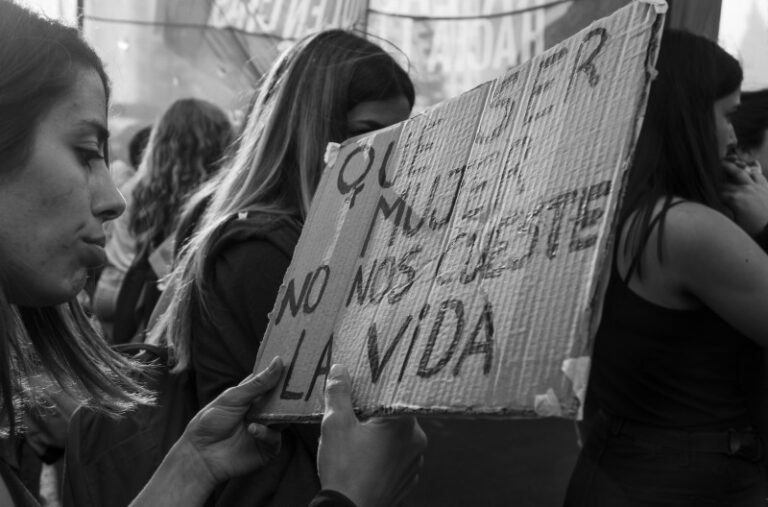 HACIA LA
QUE SER
MUJER
NO NOS CUESTE
LA VIDA